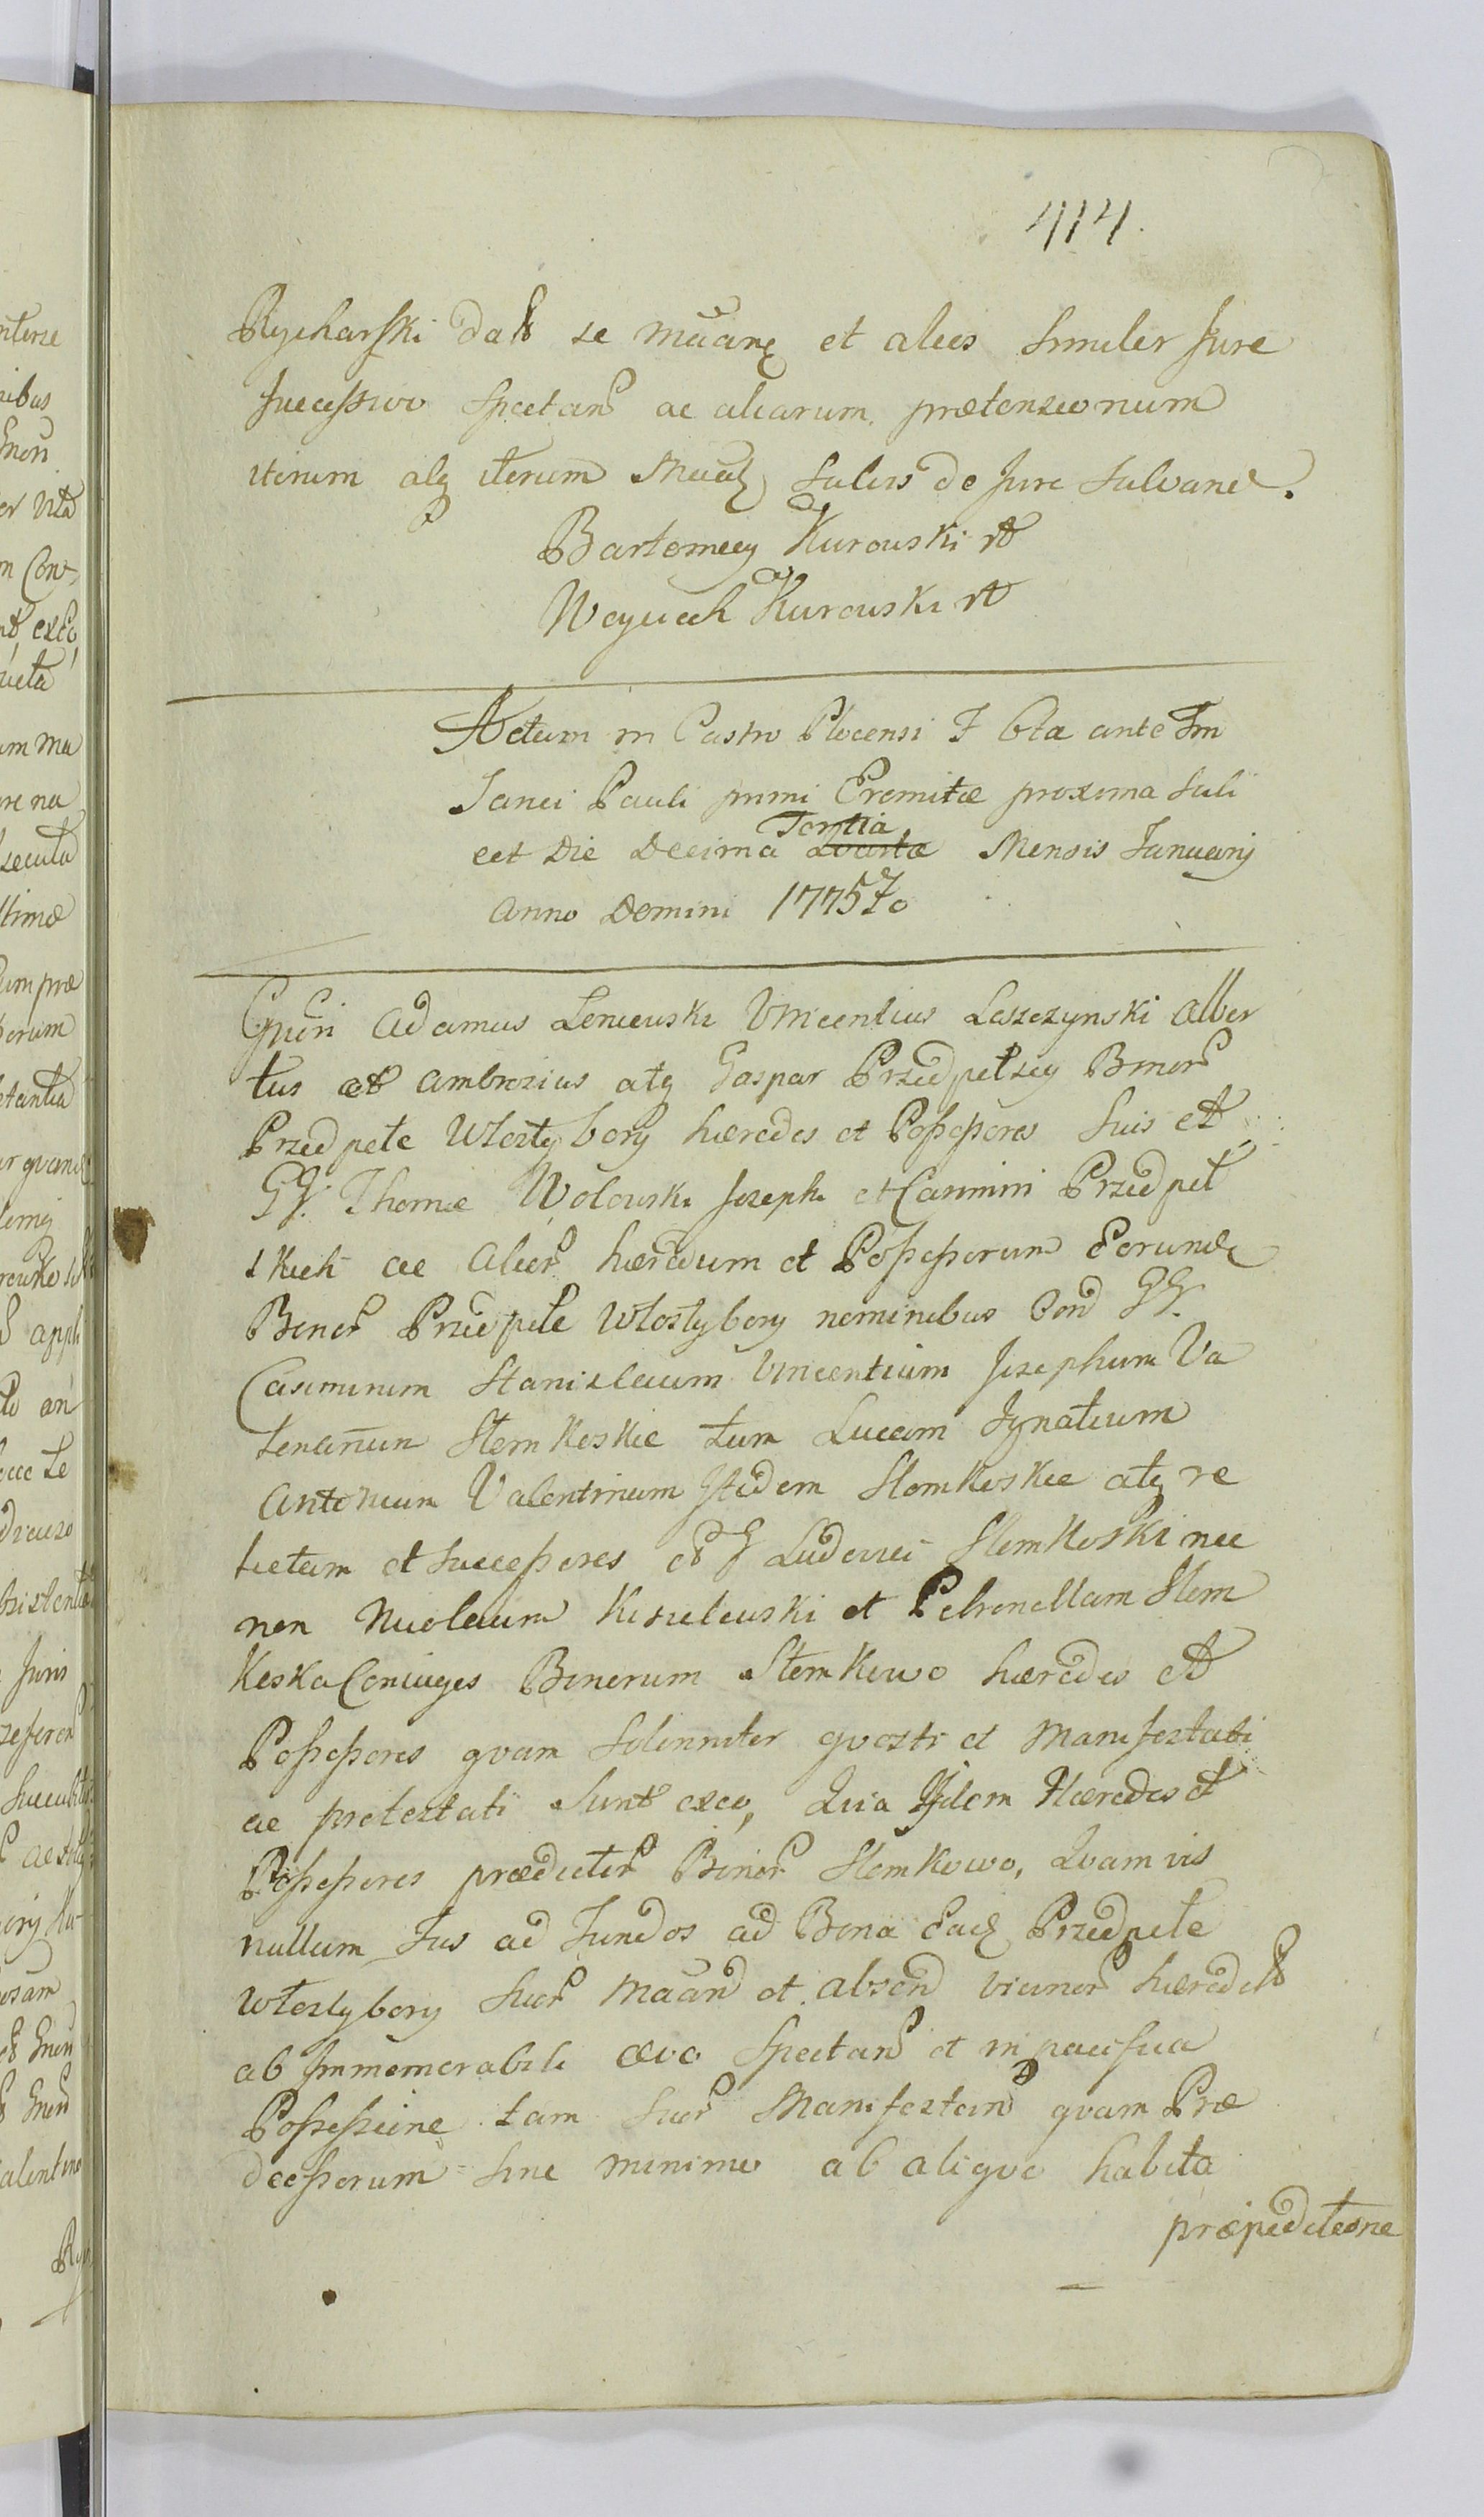 414.
Rycharski se et alios similer Jure
successivo spectan ac aliarum praetensionum
iterum atq iterum salvis de Jure salvand.
Bartomiey Kurowski
Woyciech Kurowski
Actum in Castro Plocensi F 6ta ante Fm
Sanci Pauli primi Eremitae proxima
Die Decima Quarta Tertia Mensis Januarij
Anno Domini 1775to
Gnsi Adamus Lencewski Vincentius Leszczynski Alber
tus et Ambrosius atq Gaspar Przedpełscy Bonor
Przedpełe Włostybory haeredes et Possessores suis et
GG. Thomae Wołowski Joseph et Casimiri Przedpeł
skich ac Alior haeredum et Possessorum Eorund
Bonor Przedpełe Włostybory nominibus Con GG.
Casimirum Stanislaum Vincentium Josephum Va
lentinum Słomkoskie tum Lucam Ignatium
Antonium Valentinum Itidem Słomkoskie atq re
lictam et successores G Ludovici Słomkoski nec
non Nicolaum Kisielewski et Petronellam Słom
koska Coniuges Bonorum Słomkowo haeredes et
Possessores quam solenniter questi et manifestati
ac protestati sunt exeo, Quia Ijdem Haeredes et
Possessores praedictor Bonor Słomkowo, Quamvis
nullum Jus ad Fundos ad Bona Przedpełe
Włostybory suor et absen vicinor haeredit
ab Immemorabili aevo spectan et in pacifica
Possessione tam suor Manifestan quam Prae
decessorum sine minima ab aliquo habita
praepeditione